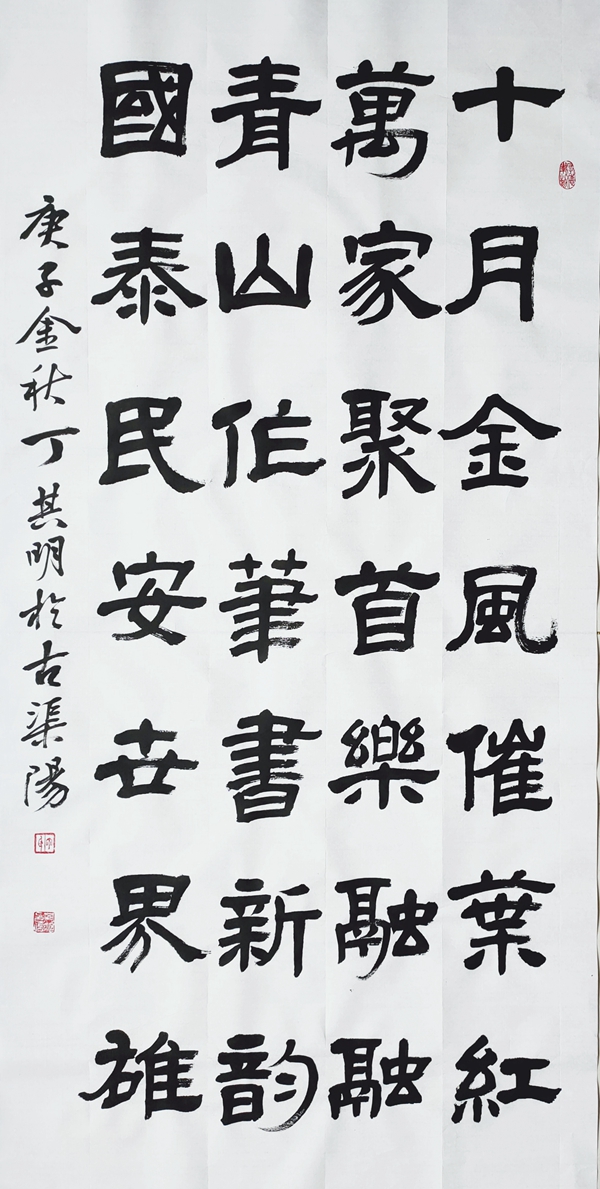 十月金風催葉紅
萬家聚首樂融融
青山作筆書新韵
國泰民安世界雄
庚子金秋丁其明於古渠陽